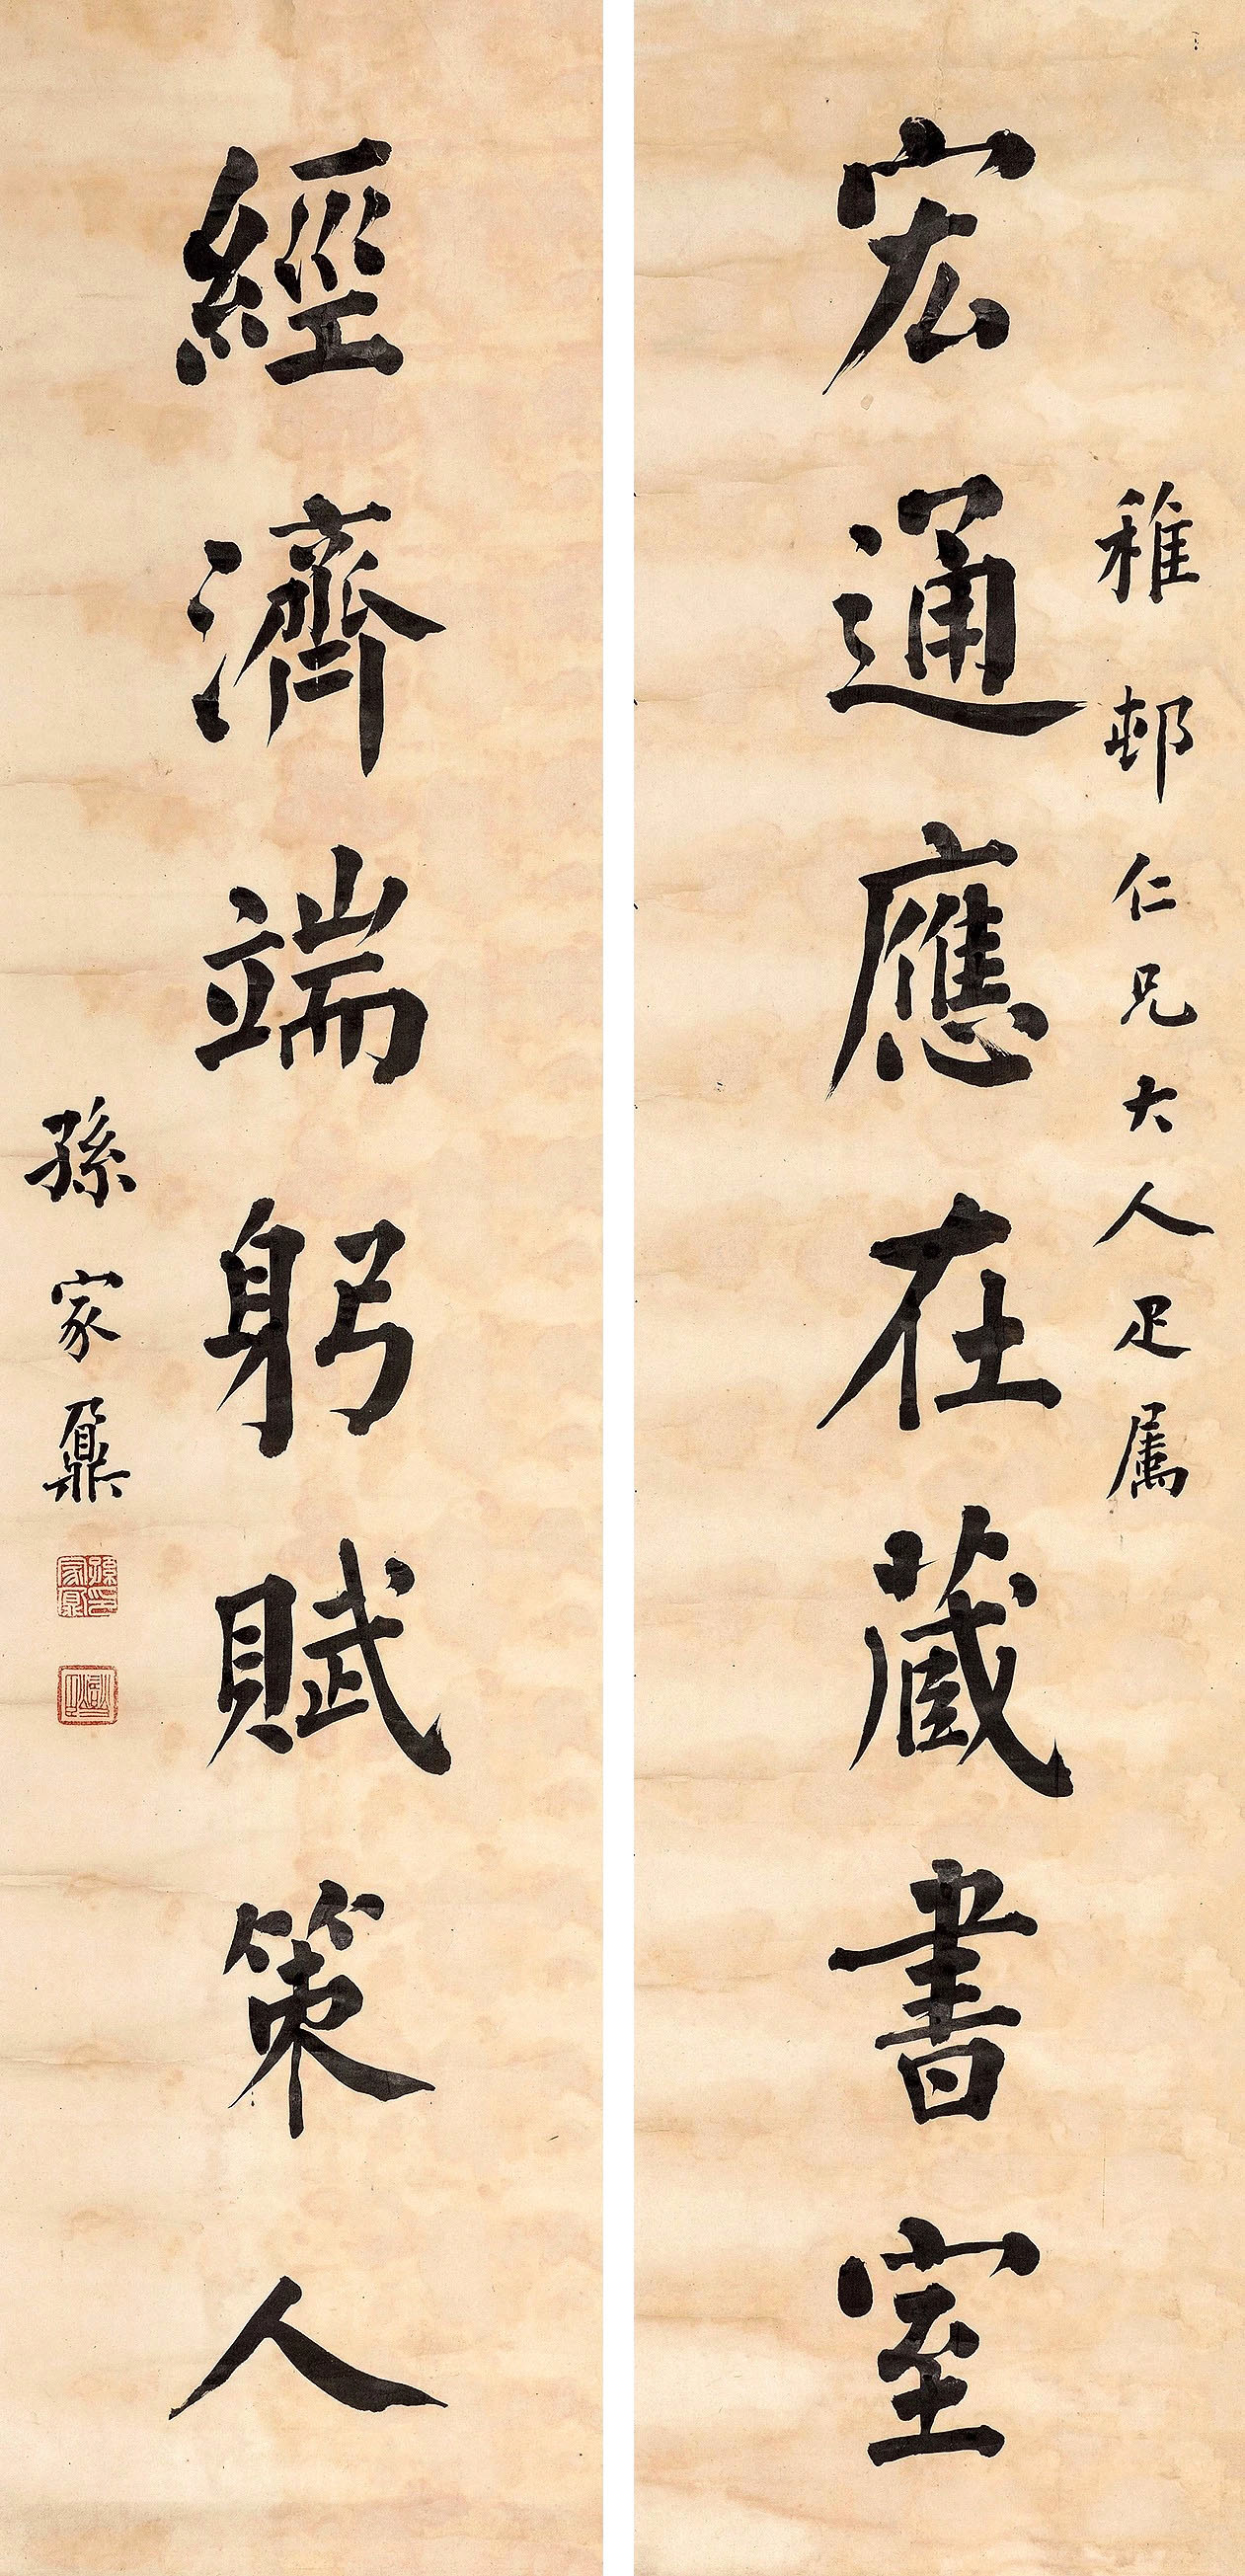 稚邨仁兄大人疋属
宏通應在藏書室
經濟端躬賦策人
孫家鼐
孫印家鼐
燮臣